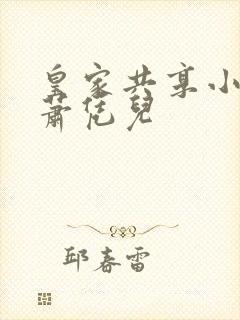 皇家共享小
蕭凭兒
邱春雷